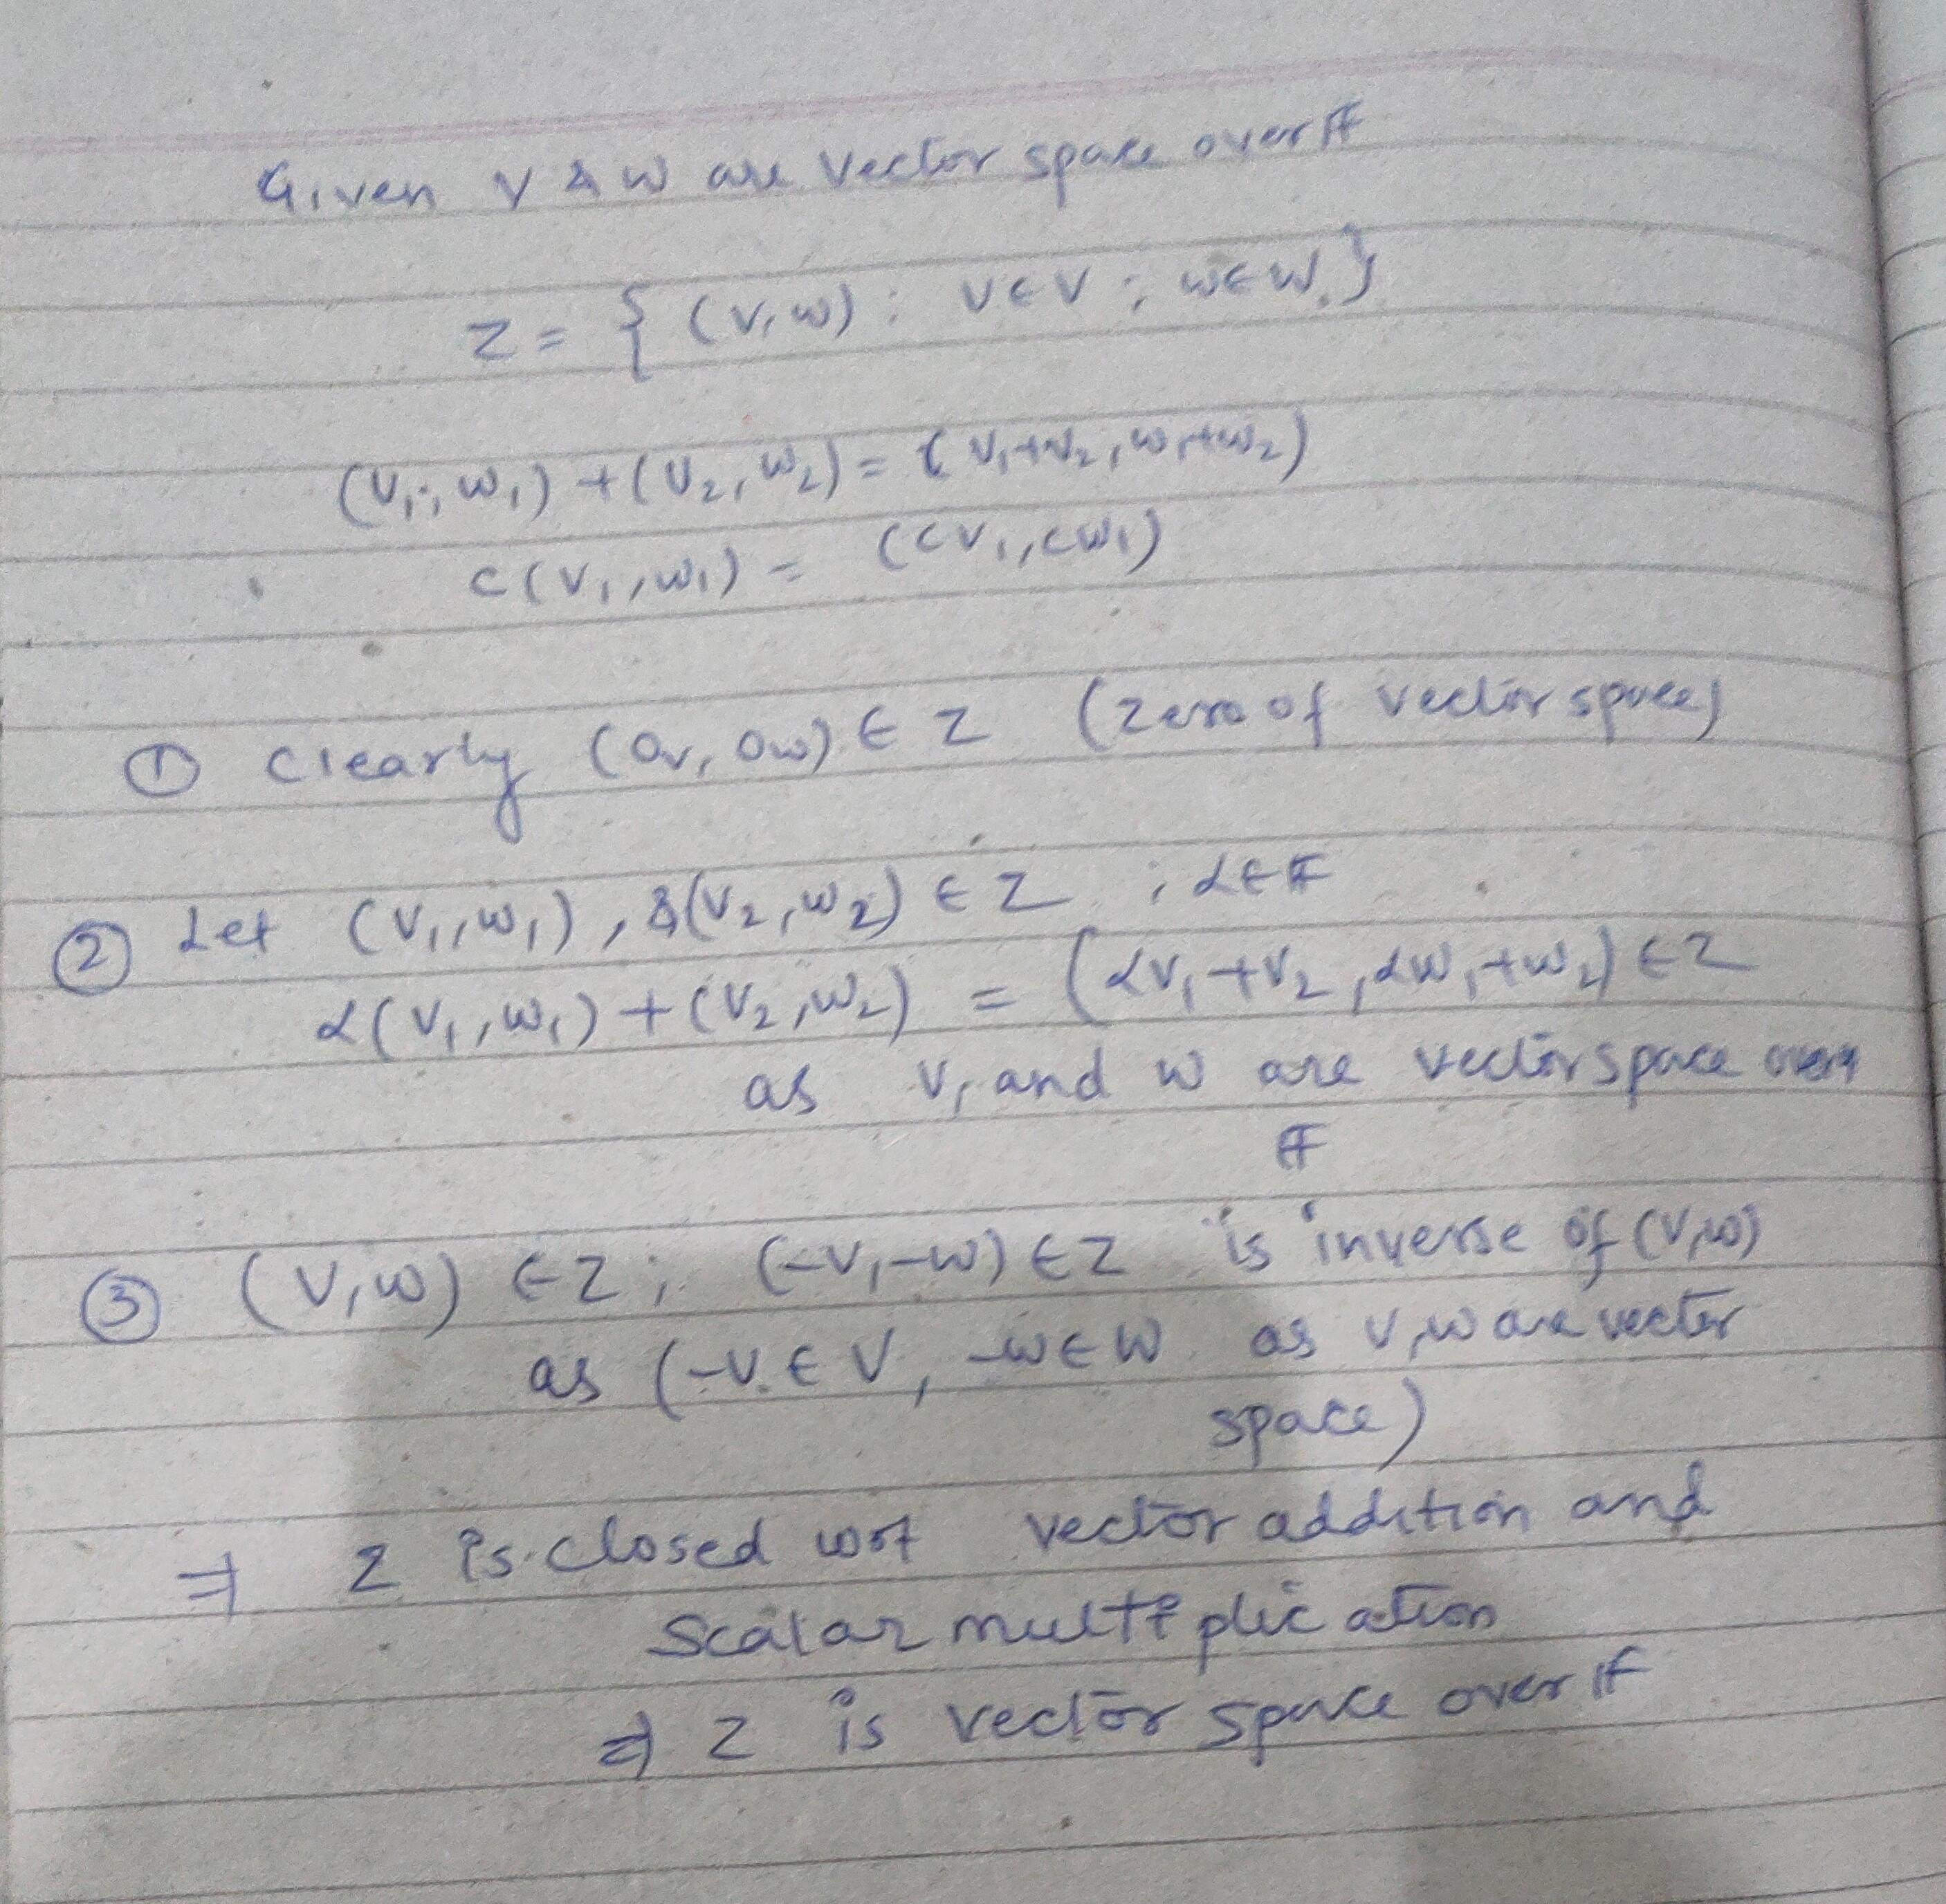 Given V & W are vector space over 𝔽
Z = { (v, w) : v ∈ V ; w ∈ W }
(v₁, w₁) + (v₂, w₂) = (v₁+v₂, w₁+w₂)
c(v₁, w₁) = (cv₁, cw₁)
① Clearly (0v, 0w) ∈ Z (zero of vector space)
② Let (v₁, w₁), & (v₂, w₂) ∈ Z ; α ∈ 𝔽
α(v₁, w₁) + (v₂, w₂) = (αv₁+v₂, αw₁+w₂) ∈ Z
as V, and W are vector space over
𝔽
③ (v, w) ∈ Z ; (-v, -w) ∈ Z is inverse of (v, w)
as (-v ∈ V, -w ∈ W as V, W are vector
space)
⇒ Z is closed wrt vector addition and
scalar multiplication
⇒ Z is vector space over 𝔽